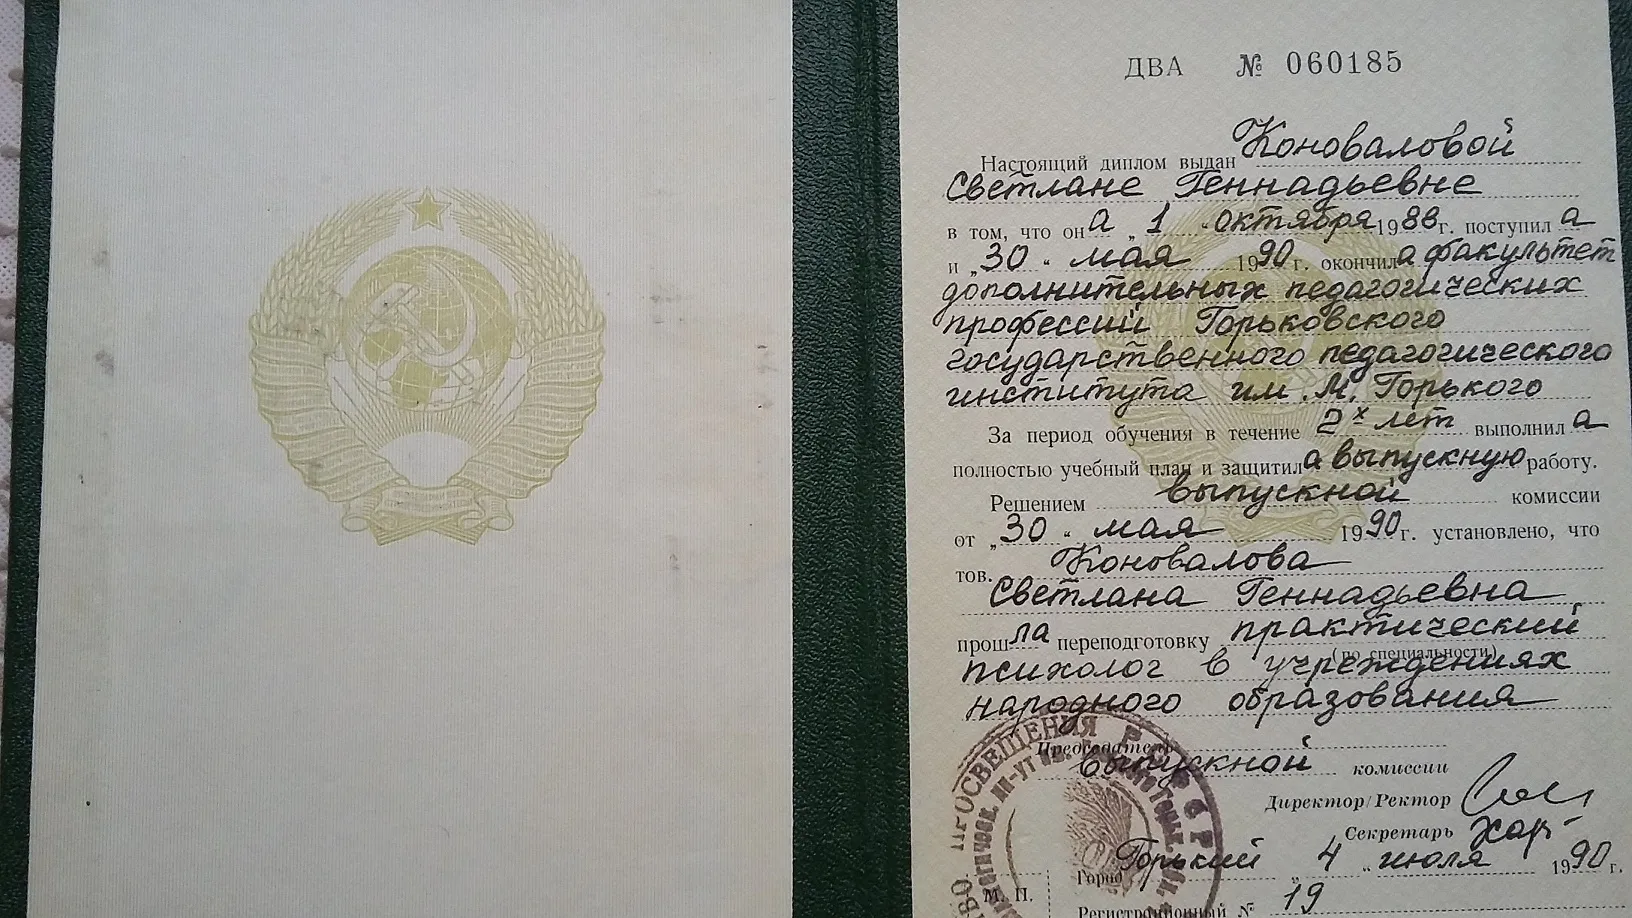 ДВА № 060185
Настоящий диплом выдан Коноваловой
Светлане Геннадьевне
в том, что она „1 “ октября 1988г. поступила
и „30 “ мая 1990 г. окончила факультет
дополнительных педагогических
профессий Горьковского
государственного педагогического
института им. М. Горького
За период обучения в течение 2х лет выполнила
полностью учебный план и защитила выпускную работу.
Решением выпускной комиссии
от „30 “ мая 1990 г. установлено, что
тов. Коновалова
Светлана Геннадьевна
прошла переподготовку практический
(по специальности)
психолог в учреждениях
народного образования
Председатель
выпускной комиссии
Директор/Ректор
Секретарь
Город Горький „4 „ июля 1990 г.
М. П.
Регистрационный № 19
ПРОСВЕЩЕНИЯ РСФСР